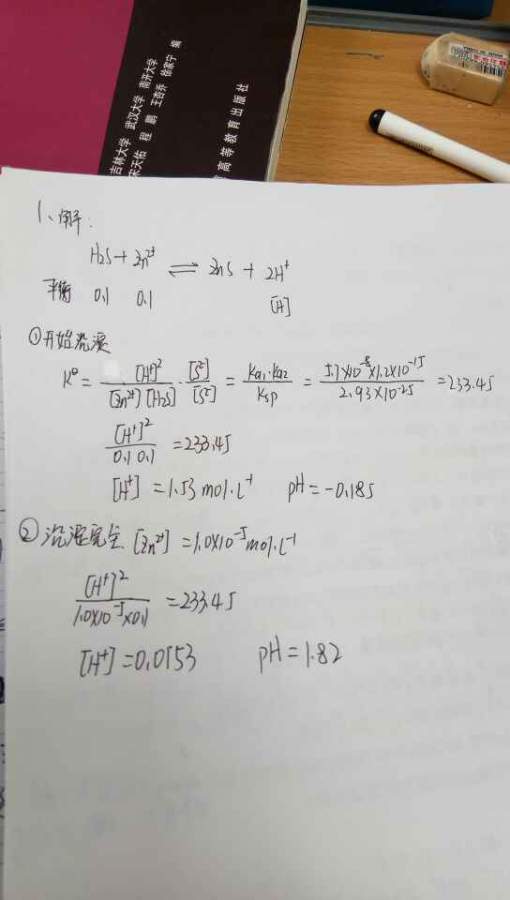 吉林大学 武汉大学 南开大学
宋天佑 程鹏 王杏乔 徐家宁 编
高等教育出版社
1、解:
H₂S + Zn²⁺ ⇌ ZnS + 2H⁺
平衡 0.1 0.1 [H]
①开始沉淀
K^θ = [H⁺]² / [Zn²⁺][H₂S] · [S²⁻]/[S²⁻] = Ka₁·Ka₂ / Ksp = 1.7×10⁻⁸×1.2×10⁻¹⁵ / 2.93×10⁻²⁵ = 233.45
[H⁺]² / 0.1 0.1 = 233.45
[H⁺] = 1.53 mol·L⁻¹ pH = -0.185
② 沉淀完全 [Zn²⁺] = 1.0×10⁻⁵ mol·L⁻¹
[H⁺]² / 1.0×10⁻⁵×0.1 = 233.45
[H⁺] = 0.0153 pH = 1.82